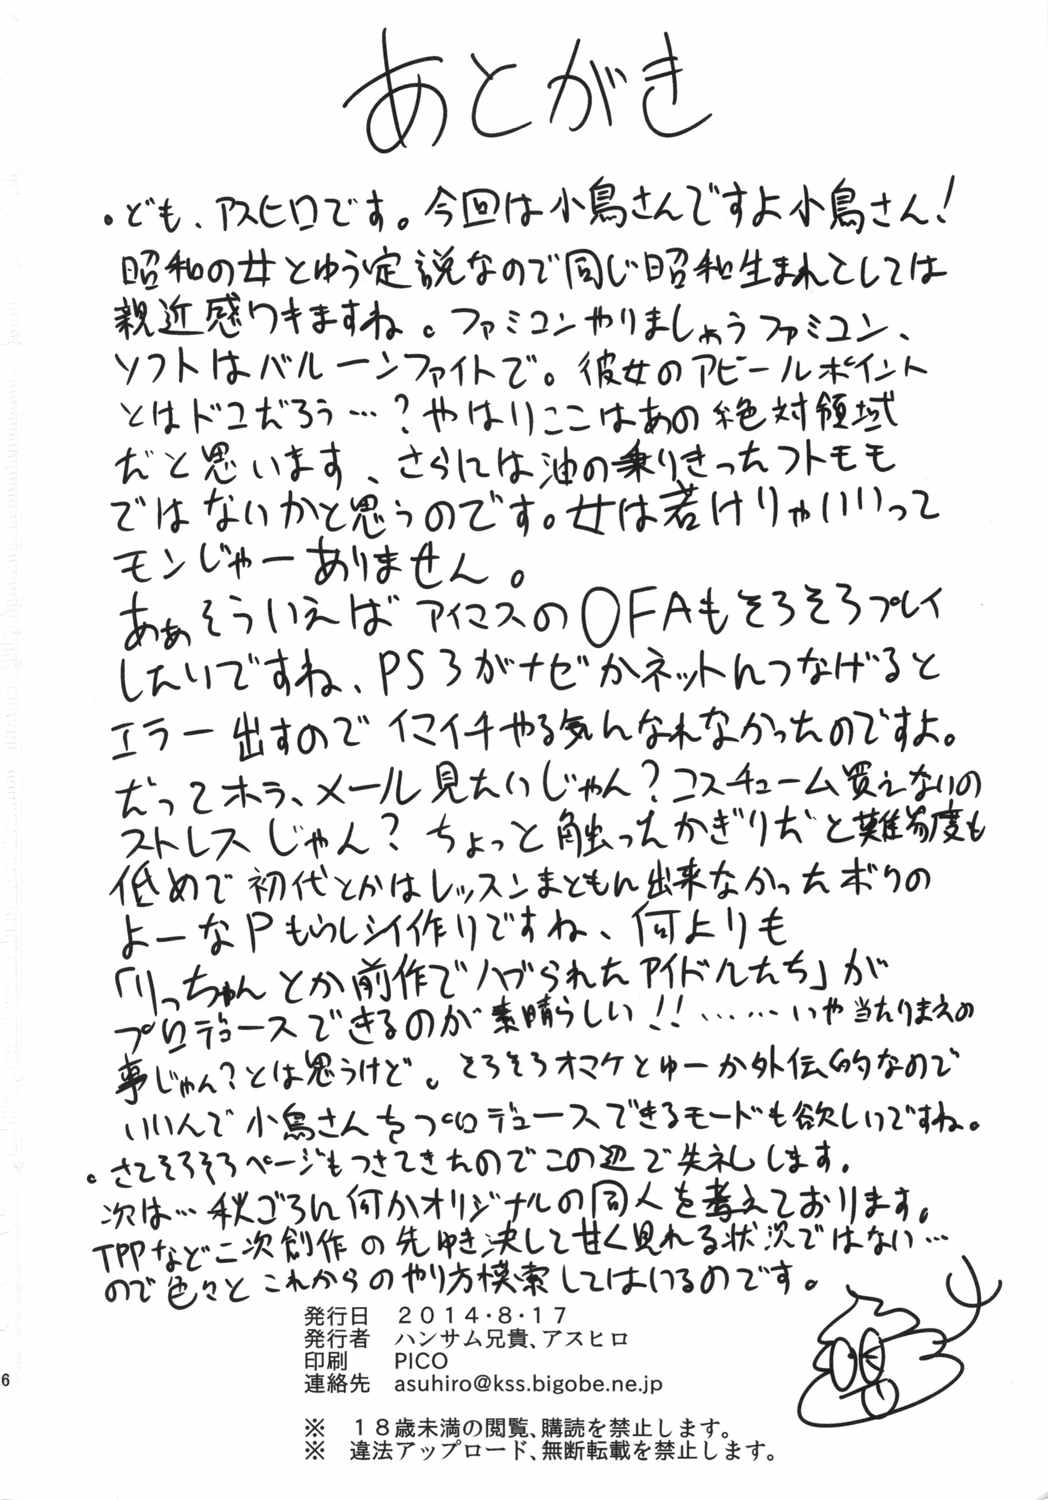 あとがき
・ども、アスヒロです。今回は小鳥さんですよ小鳥さん!
昭和の女とゆう定説なので同じ昭和生まれとしては
親近感ワキますね。ファミコンやりましょうファミコン、
ソフトはバルーンファイトで。彼女のアピールポイント
とはドコだろう…?やはりここはあの絶対領域
だと思います、さらには油の乗りきったフトモモ
ではないかと思うのです。女は若けりゃいいって
モンじゃーありません。
あぁそういえばアイマスのOFAもそろそろプレイ
したいですね、PS3がナゼかネットんつなげると
エラー出すのでイマイチやる気んなれなかったのですよ。
だってホラ、メール見たいじゃん?コスチューム買えないの
ストレスじゃん?ちょっと触ったかぎりだと難易度も
低めで初代とかはレッスンまともん出来なかったボクの
よーなPもらしい作りですね、何よりも
「りっちゃんとか前作でハブられたアイドルたち」が
プロデュースできるのが素晴らしい!!……いや当たりまえの
事じゃん?とは思うけど。そろそろオマケとゆーか外伝的なので
いいんで小鳥さんをプロデュースできるモードも欲しいですね。
・さてそろそろページもつきてきたのでこの辺で失礼します。
次は…秋ごろん何かオリジナルの同人を考えております。
TPPなど二次創作の先ゆき決して甘く見れる状況ではない…
ので色々とこれからのやり方模索してはいるのです。
発行日 2014・8・17
発行者 ハンサム兄貴、アスヒロ
印刷 PICO
連絡先 asuhiro@kss.bigobe.ne.jp
※ 18歳未満の閲覧、購読を禁止します。
※ 違法アップロード、無断転載を禁止します。
6